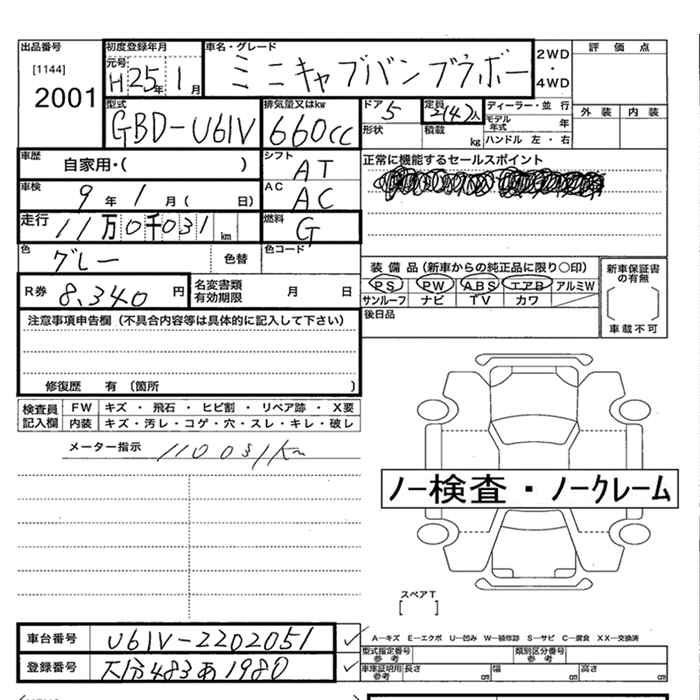 出品番号 初度登録年月 車名・グレード 2WD・4WD 評価点
[1144] 元号 H25年1月 ミニキャブバンブラボー
2001
型式 排気量又はkw ドア 5 定員 2(4)人 ディーラー・並行 外装 内装
GBD-U61V 660cc 形状 積載 kg モデル年式 年
ハンドル 左・右
車歴 自家用・( ) シフト AT 正常に機能するセールスポイント
車検 9年1月( 日) AC AC
走行 11万0千031km 燃料 G
色 グレー 色替 色コード
装備品(新車からの純正品に限り○印) 新車保証書の有無
R券 8,340円 名変書類有効期限 月 日 PS PW ABS エアB アルミW
サンルーフ ナビ TV カワ
車載不可
注意事項申告欄(不具合内容等は具体的に記入して下さい) 後日品
修復歴 有 〔箇所 〕
検査員記入欄 FW キズ・飛石・ヒビ割・リペア跡・X要
内装 キズ・汚レ・コゲ・穴・スレ・キレ・破レ
メーター指示 110031km
ノー検査・ノークレーム
スペアT
[ ]
車台番号 U61V-2202051 A−キズ E−エクボ U−凹み W−補修跡 S−サビ C−腐食 XX−交換済
型式指定番号 参考 類別区分番号 参考
登録番号 大分483あ1980 車庫証明用参考 長さ 幅 高さ